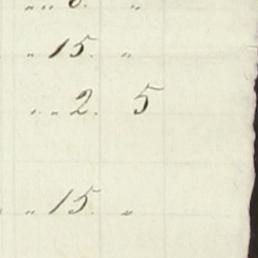 „ 15. „
„ „ 2. 5
„ 15. „